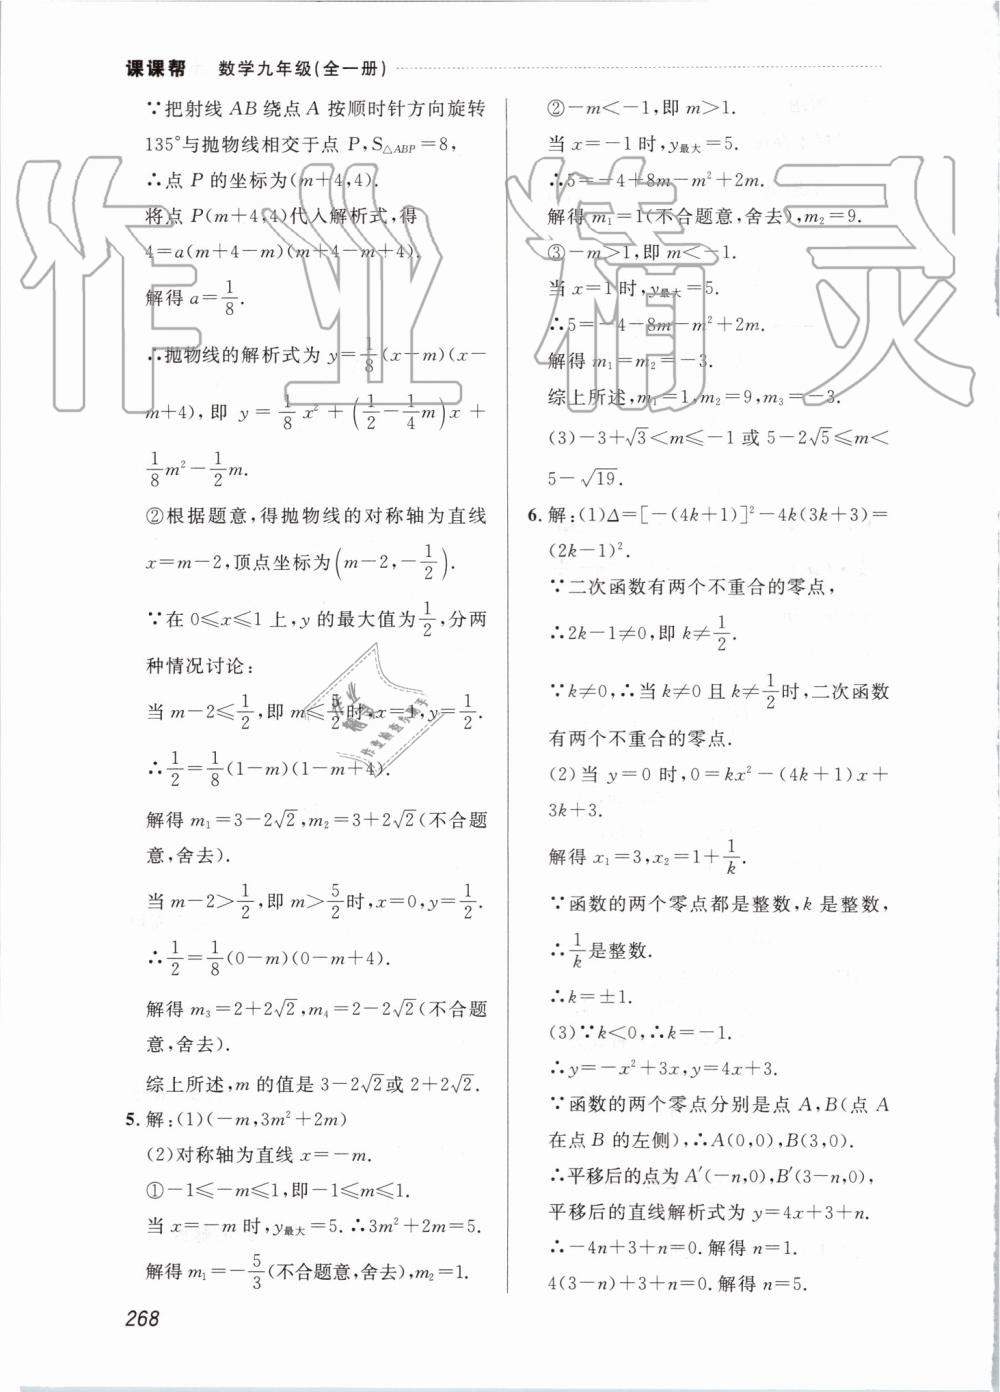 课课帮 数学九年级(全一册)
∵把射线 AB 绕点 A 按顺时针方向旋转
135°与抛物线相交于点 P,S△ABP=8,
∴点 P 的坐标为(m+4,4).
将点 P(m+4,4)代入解析式,得
4=a(m+4-m)(m+4-m+4).
解得 a=1/8.
∴抛物线的解析式为 y=1/8(x-m)(x-
m+4),即 y=1/8x²+(1/2-1/4m)x+
1/8m²-1/2m.
②根据题意,得抛物线的对称轴为直线
x=m-2,顶点坐标为(m-2,-1/2).
∵在 0≤x≤1 上,y 的最大值为1/2,分两
种情况讨论:
当 m-2≤1/2,即 m≤5/2时,x=1,y=1/2.
∴1/2=1/8(1-m)(1-m+4).
解得 m₁=3-2√2,m₂=3+2√2(不合题
意,舍去).
当 m-2>1/2,即 m>5/2时,x=0,y=1/2.
∴1/2=1/8(0-m)(0-m+4).
解得 m₃=2+2√2,m₄=2-2√2(不合题
意,舍去).
综上所述,m 的值是 3-2√2或 2+2√2.
5.解:(1)(-m,3m²+2m)
(2)对称轴为直线 x=-m.
①-1≤-m≤1,即-1≤m≤1.
当 x=-m 时,y最大=5.∴3m²+2m=5.
解得 m₁=-5/3(不合题意,舍去),m₂=1.
268
②-m<-1,即 m>1.
当 x=-1 时,y最大=5.
∴5=-4+8m-m²+2m.
解得 m₁=1(不合题意,舍去),m₂=9.
③-m>1,即 m<-1.
当 x=1 时,y最大=5.
∴5=-4-8m-m²+2m.
解得 m₁=m₂=-3.
综上所述,m₁=1,m₂=9,m₃=-3.
(3)-3+√3<m≤-1 或 5-2√5≤m<
5-√19.
6.解:(1)Δ=[-(4k+1)]²-4k(3k+3)=
(2k-1)².
∵二次函数有两个不重合的零点,
∴2k-1≠0,即 k≠1/2.
∵k≠0,∴当 k≠0 且 k≠1/2时,二次函数
有两个不重合的零点.
(2)当 y=0 时,0=kx²-(4k+1)x+
3k+3.
解得 x₁=3,x₂=1+1/k.
∵函数的两个零点都是整数,k 是整数,
∴1/k是整数.
∴k=±1.
(3)∵k<0,∴k=-1.
∴y=-x²+3x,y=4x+3.
∵函数的两个零点分别是点 A,B(点 A
在点 B 的左侧),∴A(0,0),B(3,0).
∴平移后的点为 A′(-n,0),B′(3-n,0),
平移后的直线解析式为 y=4x+3+n.
∴-4n+3+n=0.解得 n=1.
4(3-n)+3+n=0.解得 n=5.
作业精灵
作业精灵
作业检查小助手